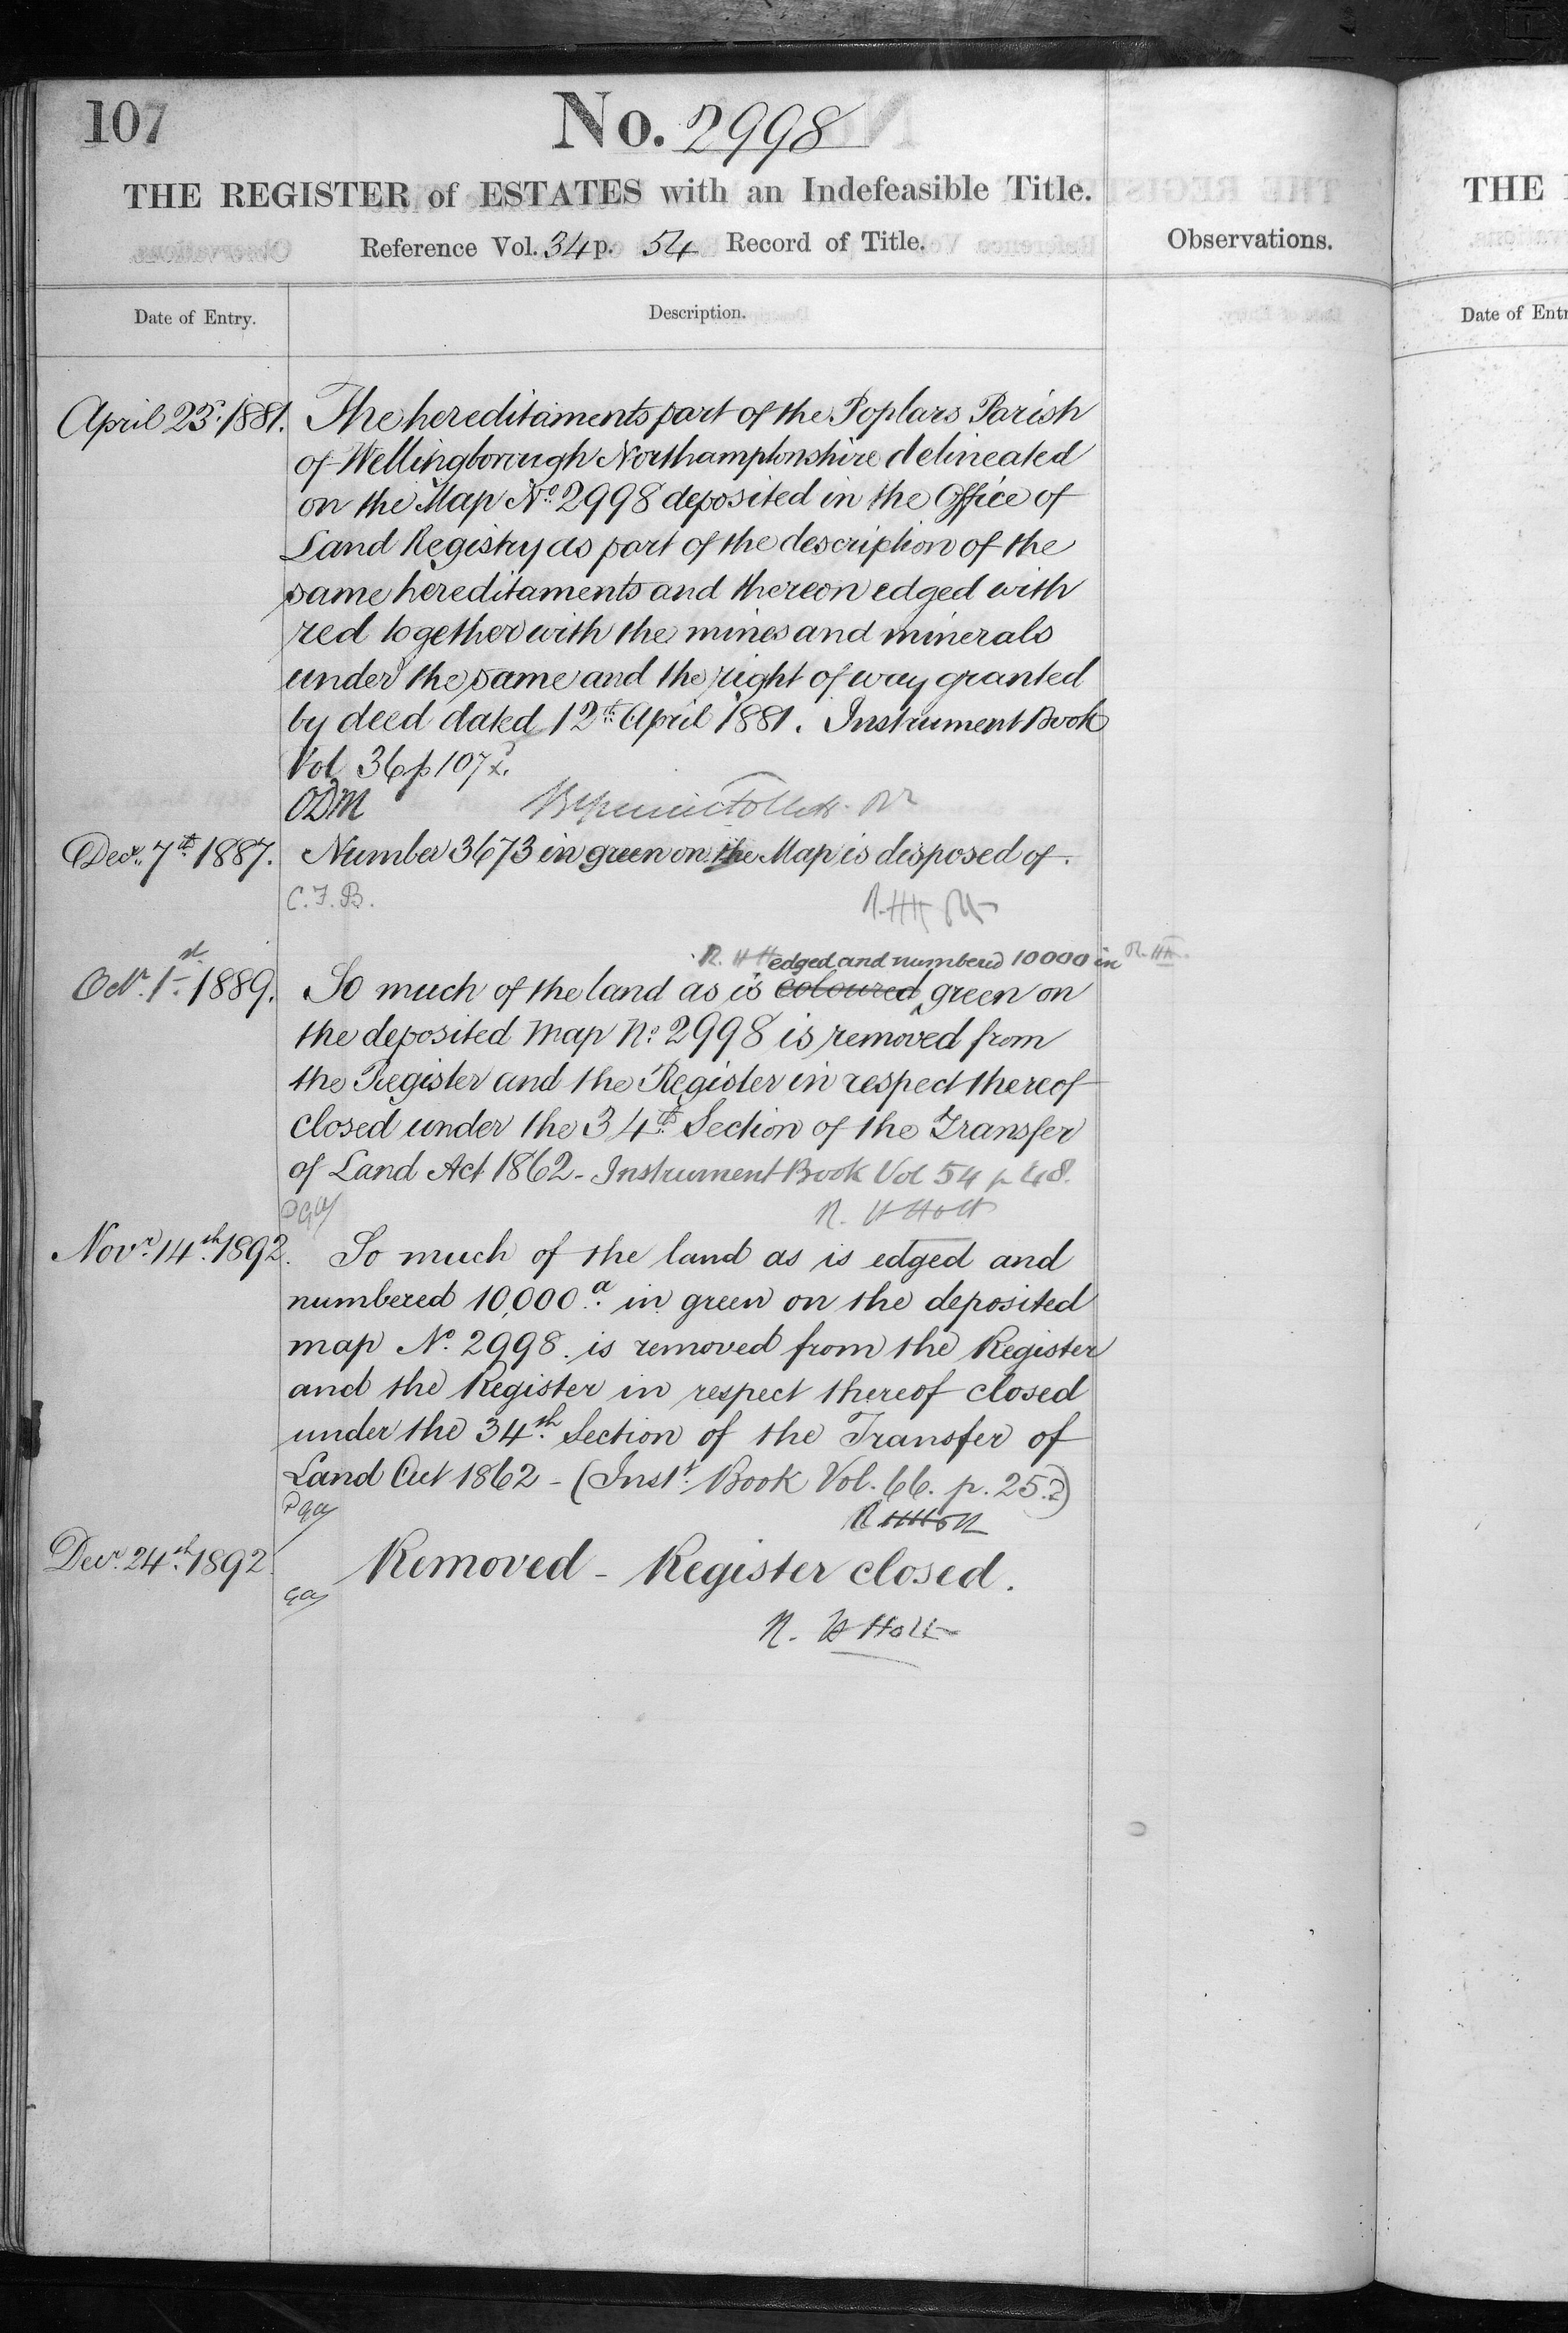 107
No. 2998
THE REGISTER of ESTATES with an Indefeasible Title.
Reference Vol. 34 p. 54 Record of Title.
Observations.
Date of Entry.
Description.
April 23d. 1881. The hereditaments part of the Poplars Parish
of Wellingborough Northamptonshire delineated
on the Map No. 2998 deposited in the Office of
Land Registry as part of the description of the
same hereditaments and thereon edged with
red together with the mines and minerals
under the same and the right of way granted
by deed dated 12th April 1881. Instrument Book
Vol 36 p 107
ODM
Decr. 7th 1887. Number 3673 in green on the Map is disposed of.
C.F.B.
R. H H edged and numbered 10000 in R. HH.
Octr. 1st. 1889. So much of the land as is coloured green on
the deposited Map No. 2998 is removed from
the Register and the Register in respect thereof
closed under the 34th. Section of the Transfer
of Land Act 1862 - Instrument Book Vol 54 p 48.
R. H Holt
Novr. 14th. 1892. So much of the land as is edged and
numbered 10,000a. in green on the deposited
map No. 2998. is removed from the Register
and the Register in respect thereof closed
under the 34th. Section of the Transfer of
Land Act 1862 - (Instt. Book Vol. 66. p. 25.)
R H Holt
Decr. 24th. 1892. Removed - Register closed.
R. H Holt
THE
Date of Entr